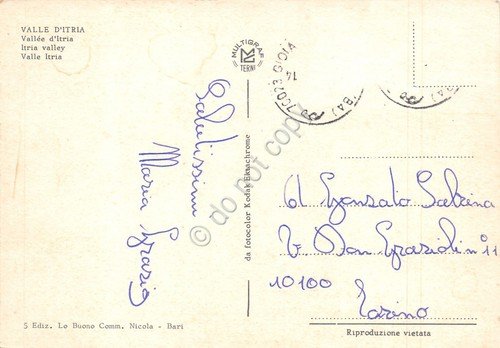 VALLE D'ITRIA
Vallée d'Itria
Itria valley
Valle Itria
MULTIGRAF
TERNI
GIOIA
14
(BA)
(BA)
Salutissimi
Maria Grazia
da fotocolor Kodak Ektachrome
do not copy
Sabrina
V. Don Grazioli n° 11
10100
Torino
5 Ediz. Lo Buono Comm. Nicola - Bari
Riproduzione vietata